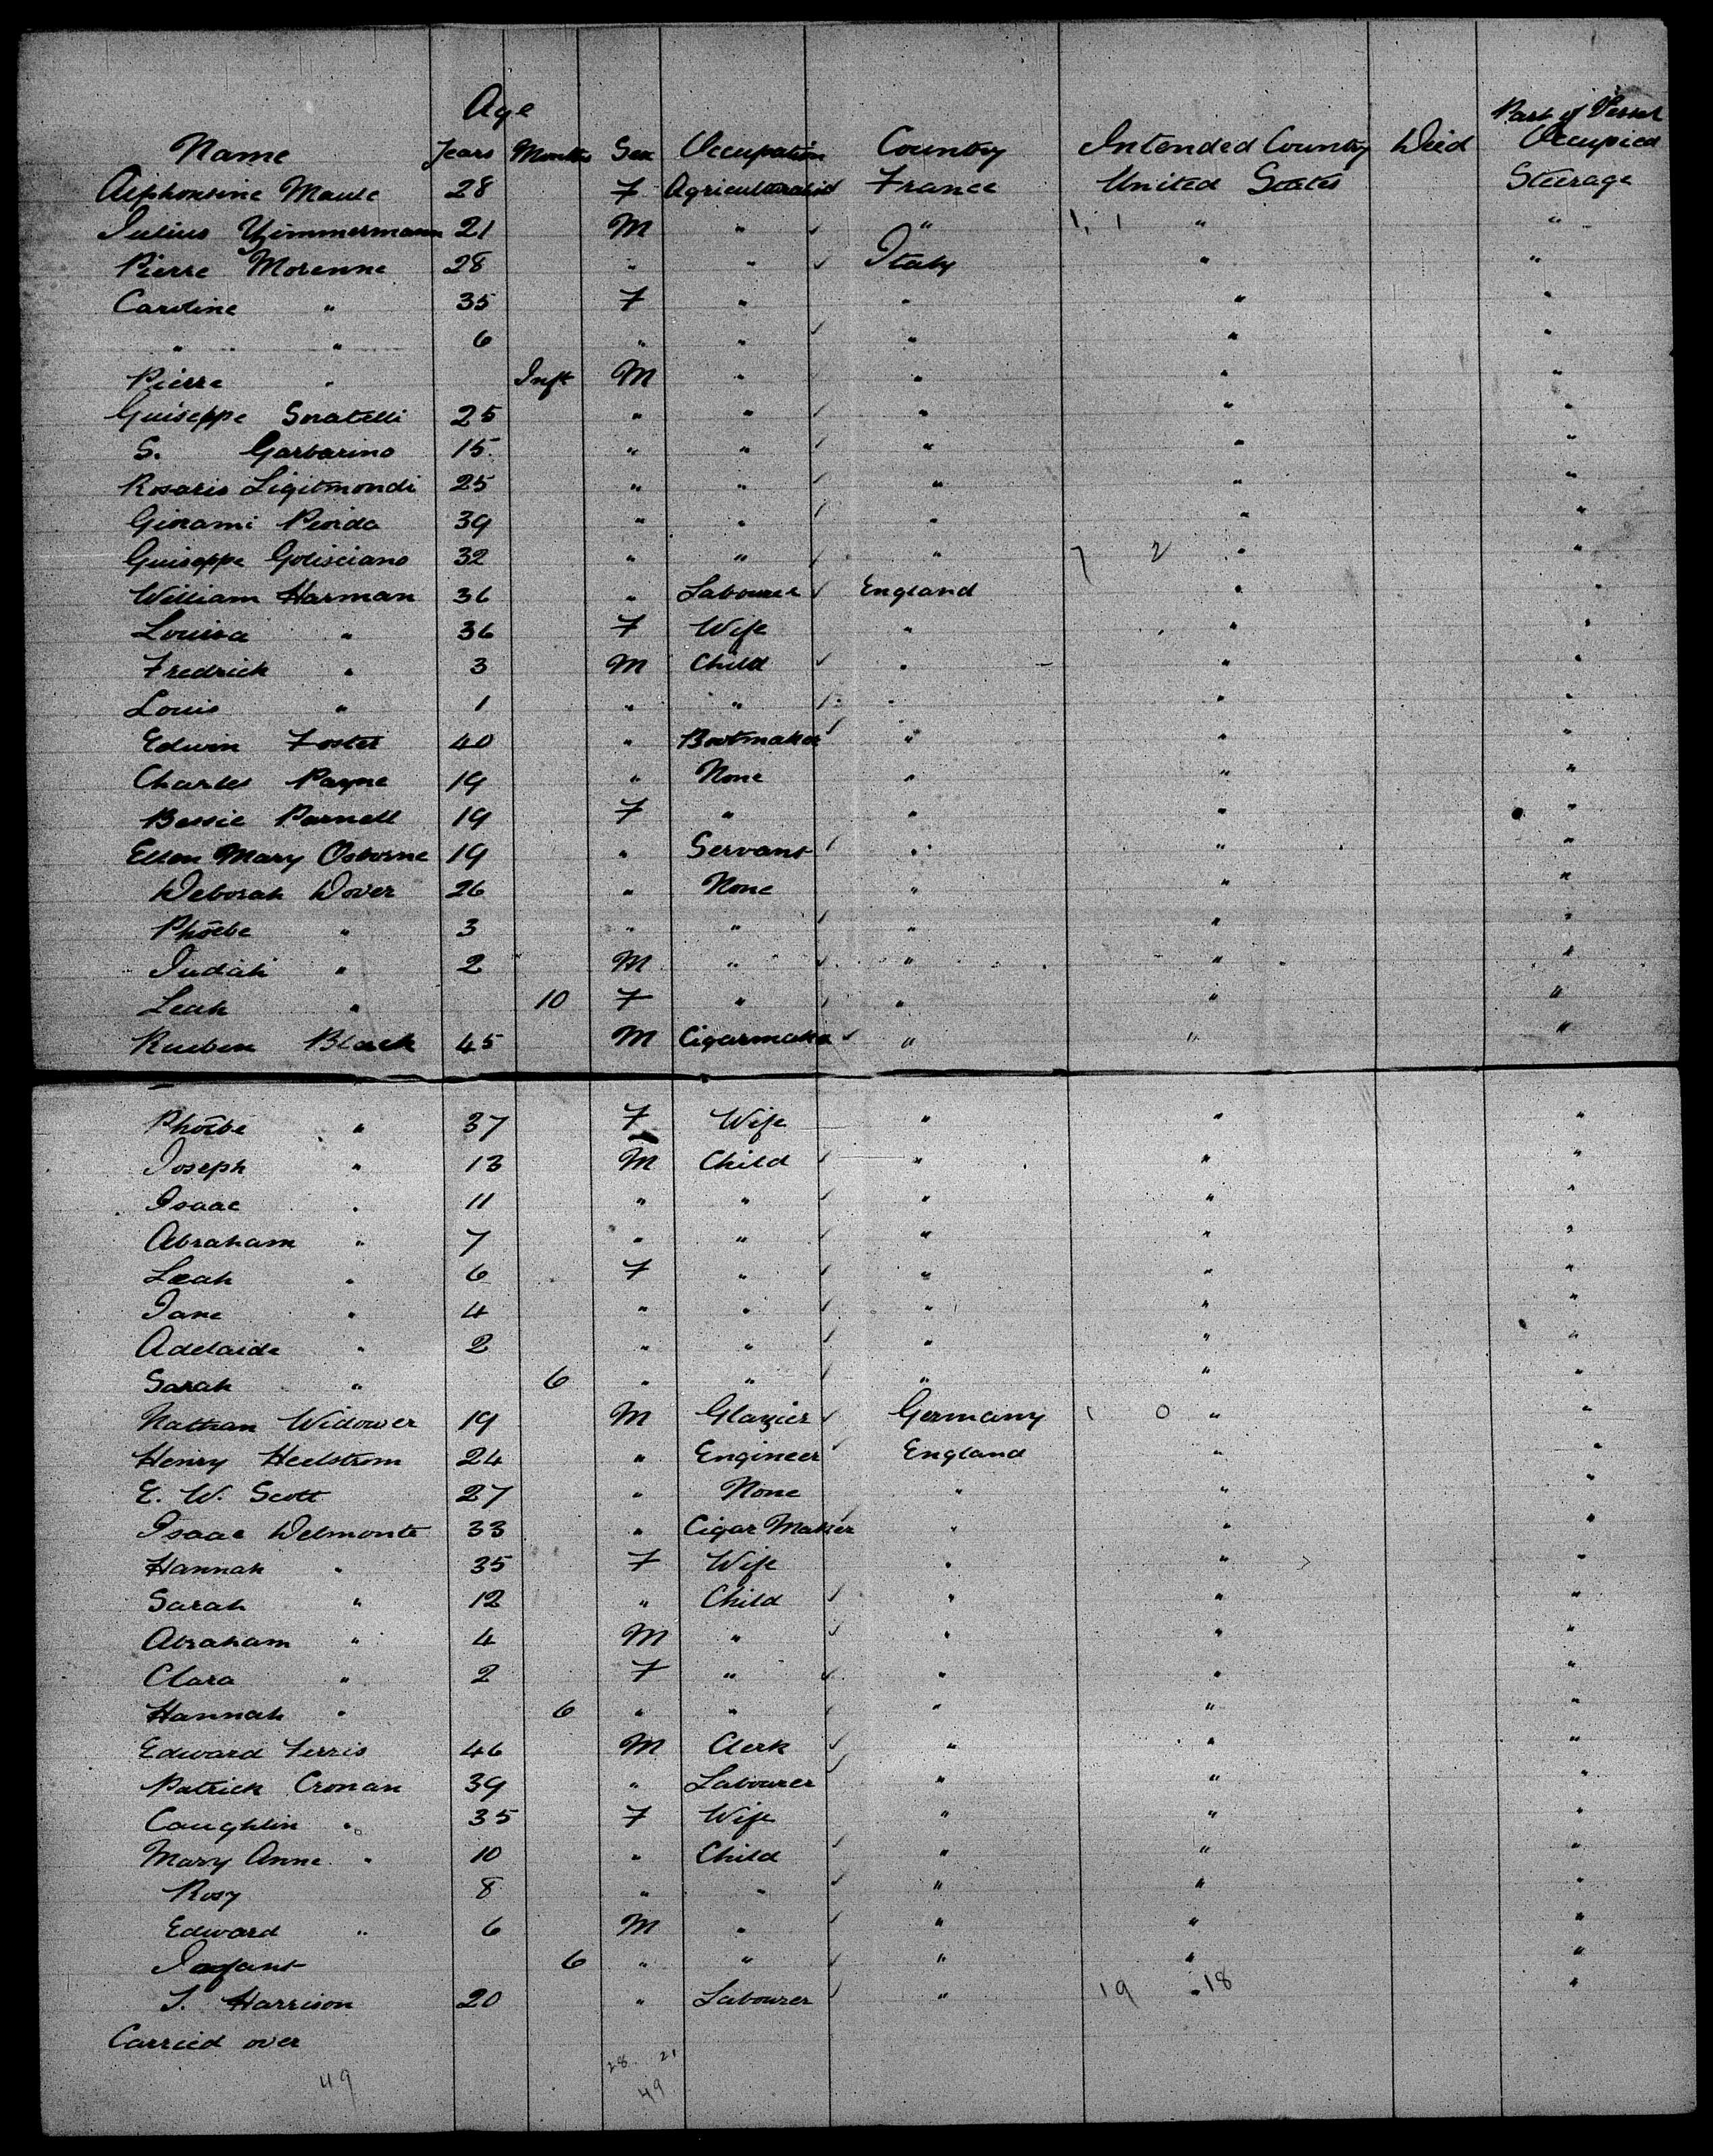 Age Part of Vessel
Name Years Months Sex Occupation Country Intended Country Died Occupied
Alphonsine Maule 28 F Agriculturalist France United States Steerage
Julius Zimmermann 21 M " ✓ " 1, 1 " "
Pierre Morenne 28 " " ✓ Italy " "
Caroline " 35 F " " " "
" " 6 " " ✓ " " "
Pierre " Inft M " " " "
Guiseppe Soratelli 25 " " ✓ " " "
S. Garbarino 15 " " ✓ " " "
Rosario Ligitmondi 25 " " ✓ " " "
Giorami Pioida 39 " " ✓ " " "
Guiseppe Golisciano 32 " " ✓ " 7 2 " "
William Harman 36 " Labourer ✓ England " "
Louisa " 36 F Wife " " "
Fredrick " 3 M Child ✓ " " "
Louis " 1 " " ✓ " " "
Edwin Foster 40 " Bootmaker ✓ " " "
Charles Payne 19 " None " " "
Bessie Parnell 19 F " " " "
Ellen Mary Osborne 19 " Servant ✓ " " "
Deborah Dover 26 " None " " "
Phoebe " 3 " " ✓ " " "
Judah " 2 M " ✓ " " "
Leah " 10 F " ✓ " " "
Rueben Black 45 M Cigarmaker ✓ " " "
Phoebe " 37 F Wife " " "
Joseph " 13 M Child ✓ " " "
Isaac " 11 " " ✓ " " "
Abraham " 7 " " ✓ " " "
Leah " 6 F " ✓ " " "
Jane " 4 " " ✓ " " "
Adelaide " 2 " " ✓ " " "
Sarah " 6 " " ✓ " " "
Nathan Widower 19 M Glazier ✓ Germany 1 0 " "
Henry Heelstrom 24 " Engineer ✓ England " "
E. W. Scott 27 " None " " "
Isaac Delmonte 33 " Cigar Maker ✓ " " "
Hannah " 35 F Wife " " "
Sarah " 12 " Child ✓ " " "
Abraham " 4 M " ✓ " " "
Clara " 2 F " ✓ " " "
Hannah " 6 " " ✓ " " "
Edward Ferris 46 M Clerk ✓ " " "
Patrick Cronan 39 " Labourer ✓ " " "
Caughlin " 35 F Wife " " "
Mary Anne " 10 " Child ✓ " " "
Rosy 8 " " ✓ " " "
Edward " 6 M " ✓ " " "
Infant 6 " " ✓ " " "
J. Harrison 20 " Labourer ✓ " 19 " 18 "
Carried over
28 21
49 49